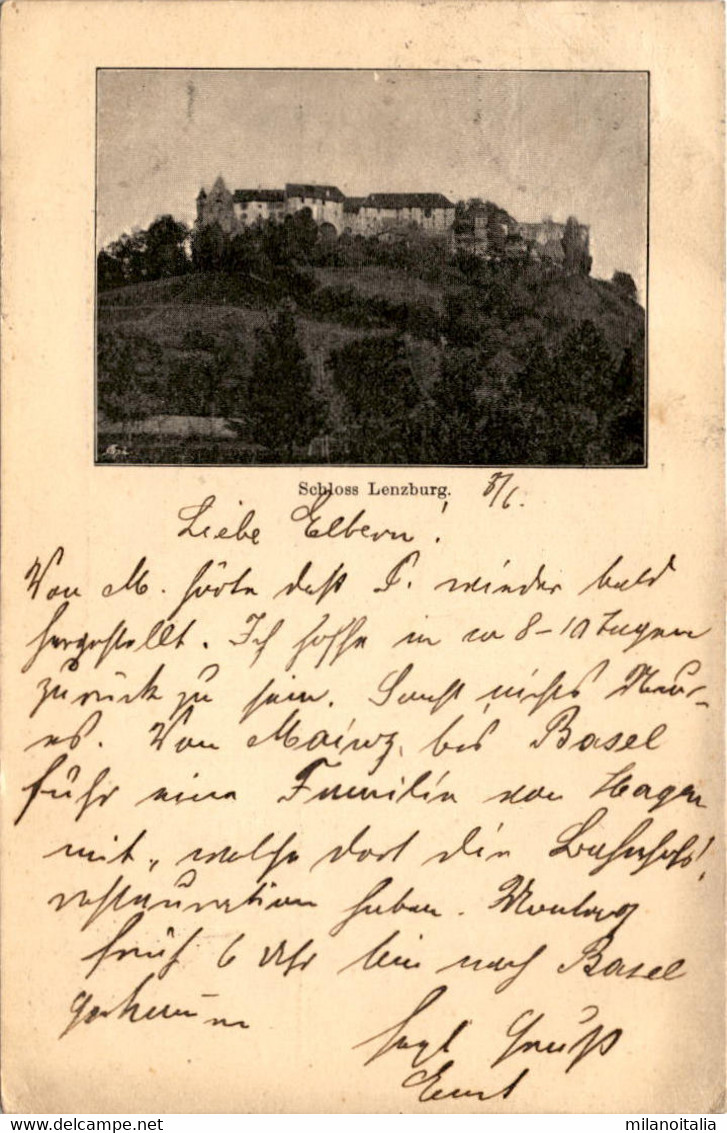 Schloss Lenzburg.
8/6.
Liebe Eltern!
Von M. hörte daß P. wieder bald
hergestellt. Ich hoffe in ca 8-10 Tagen
zurück zu sein. Sonst nichts Neu-
es. Von Mainz, bis Basel
fuhr eine Familie von Hagen
mit, welche dort die Bahnhofs-
restauration haben. Montag
früh 6 Uhr bin nach Basel
gekommen
Hzgl Gruß
Ernst
delcampe.net
milanoitalia